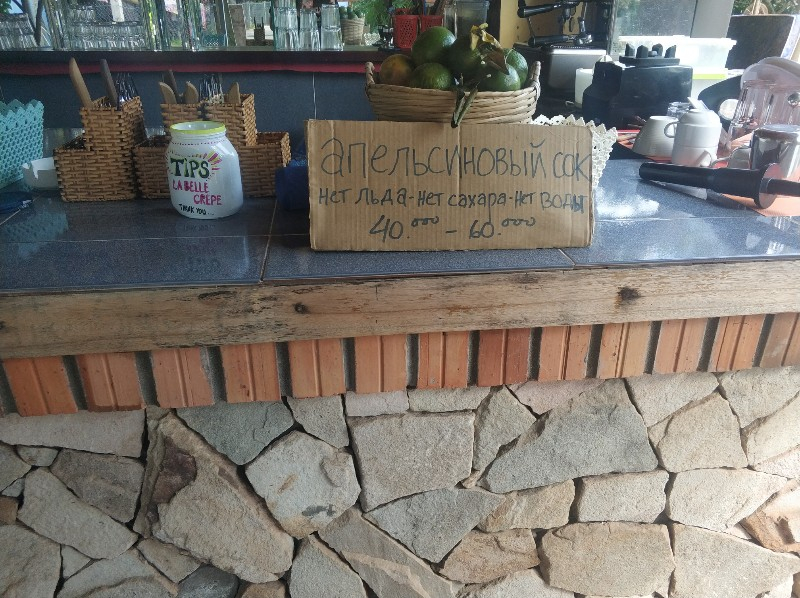 TIPS
LA BELLE
CREPE
THANK YOU...
апельсиновый сок
нет льда-нет сахара-нет воды
40.000 - 60.000